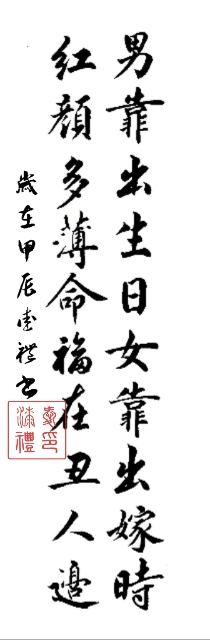 男靠出生日女靠出嫁時
紅顏多薄命福在丑人邊
歲在甲辰書